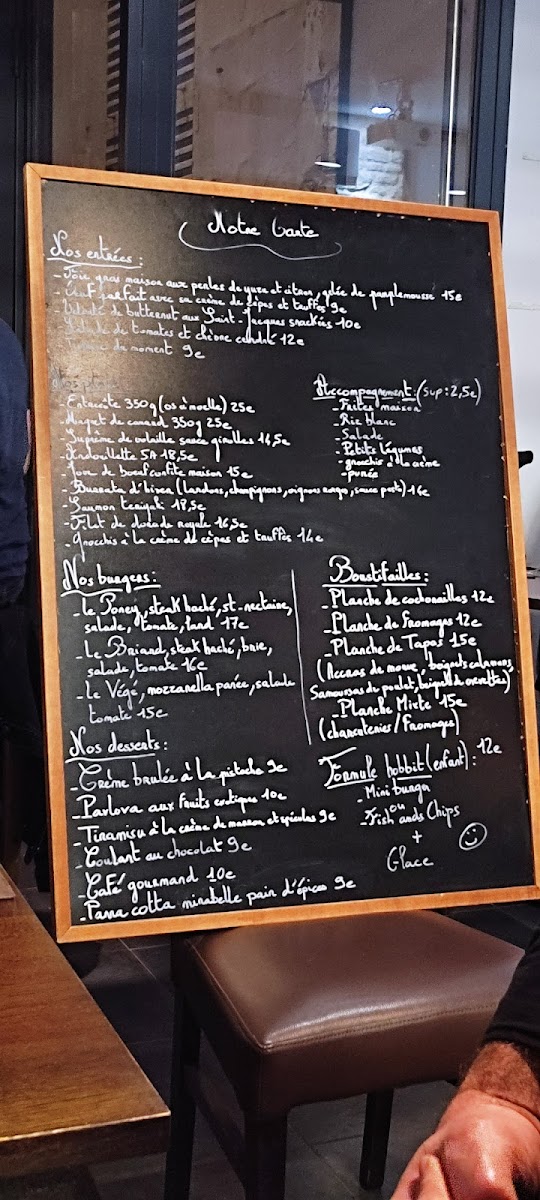 Notre Carte
Nos entrées :
- Foie gras maison aux perles de yuzu et citron, gelée de pamplemousse 15e
- Œuf parfait avec sa crème de cèpes et truffes 9e
- Velouté de butternut aux Saint-Jacques snackées 10e
- Salade de tomates et chèvre candité 12e
du moment 9e
Nos plats
- Entrecôte 350g (os à moelle) 25e
- Magret de canard 350g 25e
- Suprême de volaille sauce girolles 14,5e
- Andouillette 5A 18,5e
- Joue de boeuf confite maison 15e
- Burrata d'hiver (lardons, champignons, oignons rouges, sauce porto) 16e
- Saumon teriyaki 18,5e
- Filet de dorade royale 16,5e
- Gnocchis à la crème de cèpes et truffes 14e
Accompagnement : (sup : 2,5e)
- Frites maison
- Riz blanc
- Salade
- Petits légumes
- gnocchis à la crème
- purée
Nos burgers :
- Le Poney, steak haché, st-nectaire,
salade, tomate, lard 17e
- Le Briard, steak haché, brie,
salade, tomate 16e
- Le Végé, mozzarella panée, salade
tomate 15e
Boustifailles :
- Planche de cochonailles 12e
- Planche de Fromages 12e
- Planche de Tapas 15e
(Accras de morue, beignets calamars,
Samoussas de poulet, beignets de crevettes)
- Planche Mixte 15e
(charcuteries/Fromages)
Nos desserts :
- Crème brulée à la pistache 9e
- Pavlova aux fruits exotiques 10e
- Tiramisu à la crème de marron et spéculos 9e
- Coulant au chocolat 9e
- Café gourmand 10e
- Panna cotta mirabelle pain d'épices 9e
Formule hobbit (enfant) : 12e
- Mini burger
ou
- Fish ands Chips
+
Glace